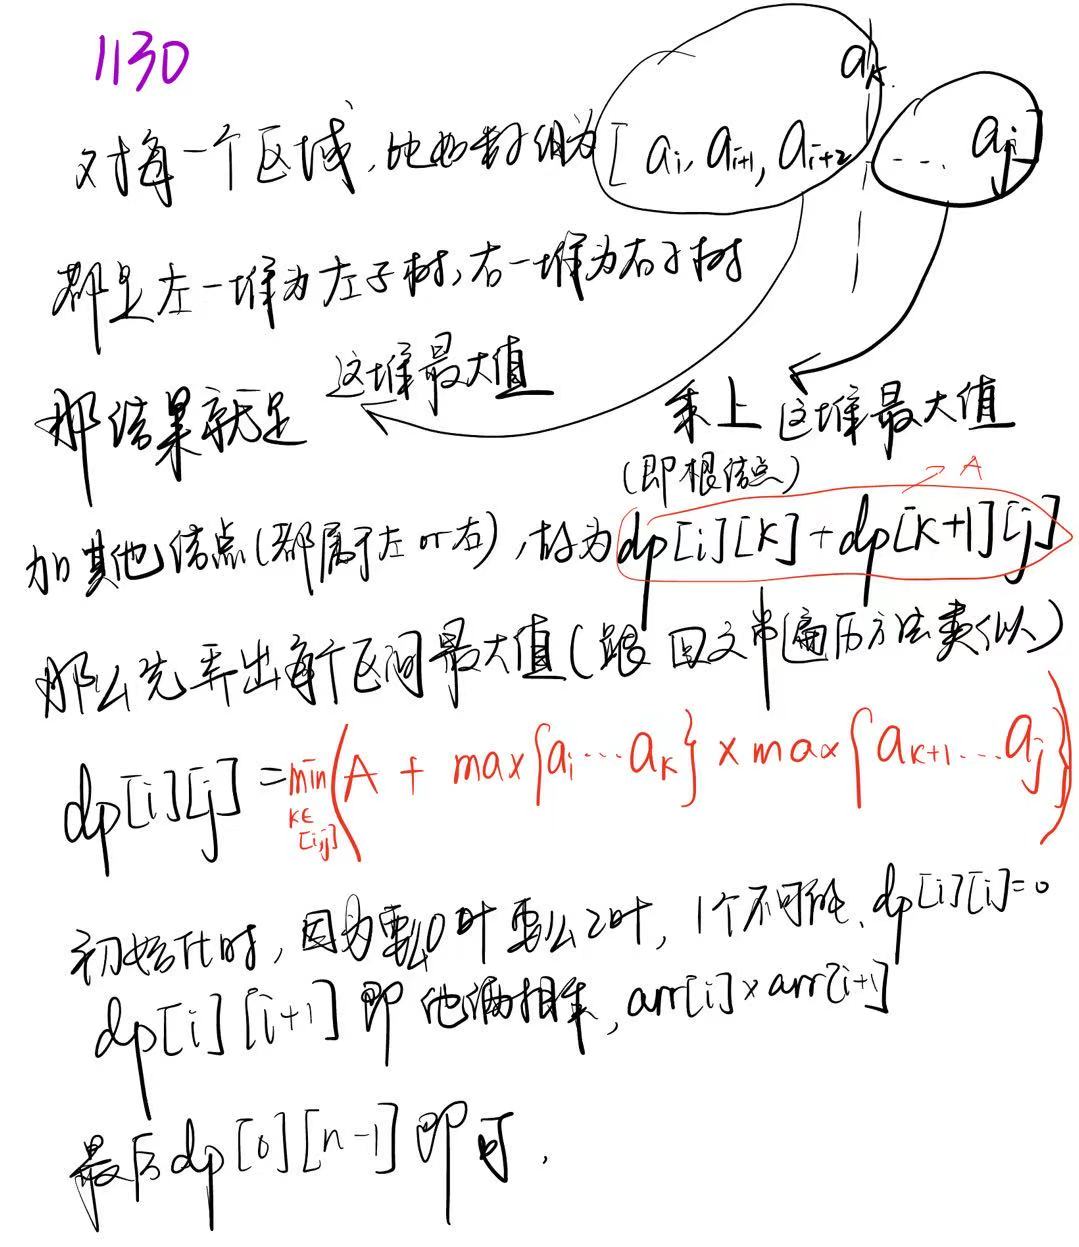 1130
aₖ
对每一个区域,比如数组为[aᵢ, aᵢ₊₁, aᵢ₊₂ ···· aⱼ]
都是左一堆为左子树,右一堆为右子树
那结果就是 这堆最大值 乘上 这堆最大值
(即根结点)
A
加其他结点(都属于左or右),故为dp[i][k]+dp[k+1][j]
那么先弄出每个区间最大值(跟回文串遍历方法类似)
dp[i][j] = min(A + max{aᵢ···aₖ} × max{aₖ₊₁···aⱼ})
k∈
[i,j]
初始化时,因为要么0叶要么2叶,1个不可能.dp[i][i]=0
dp[i][i+1]即他俩相乘,arr[i]×arr[i+1]
最后dp[0][n-1]即可.